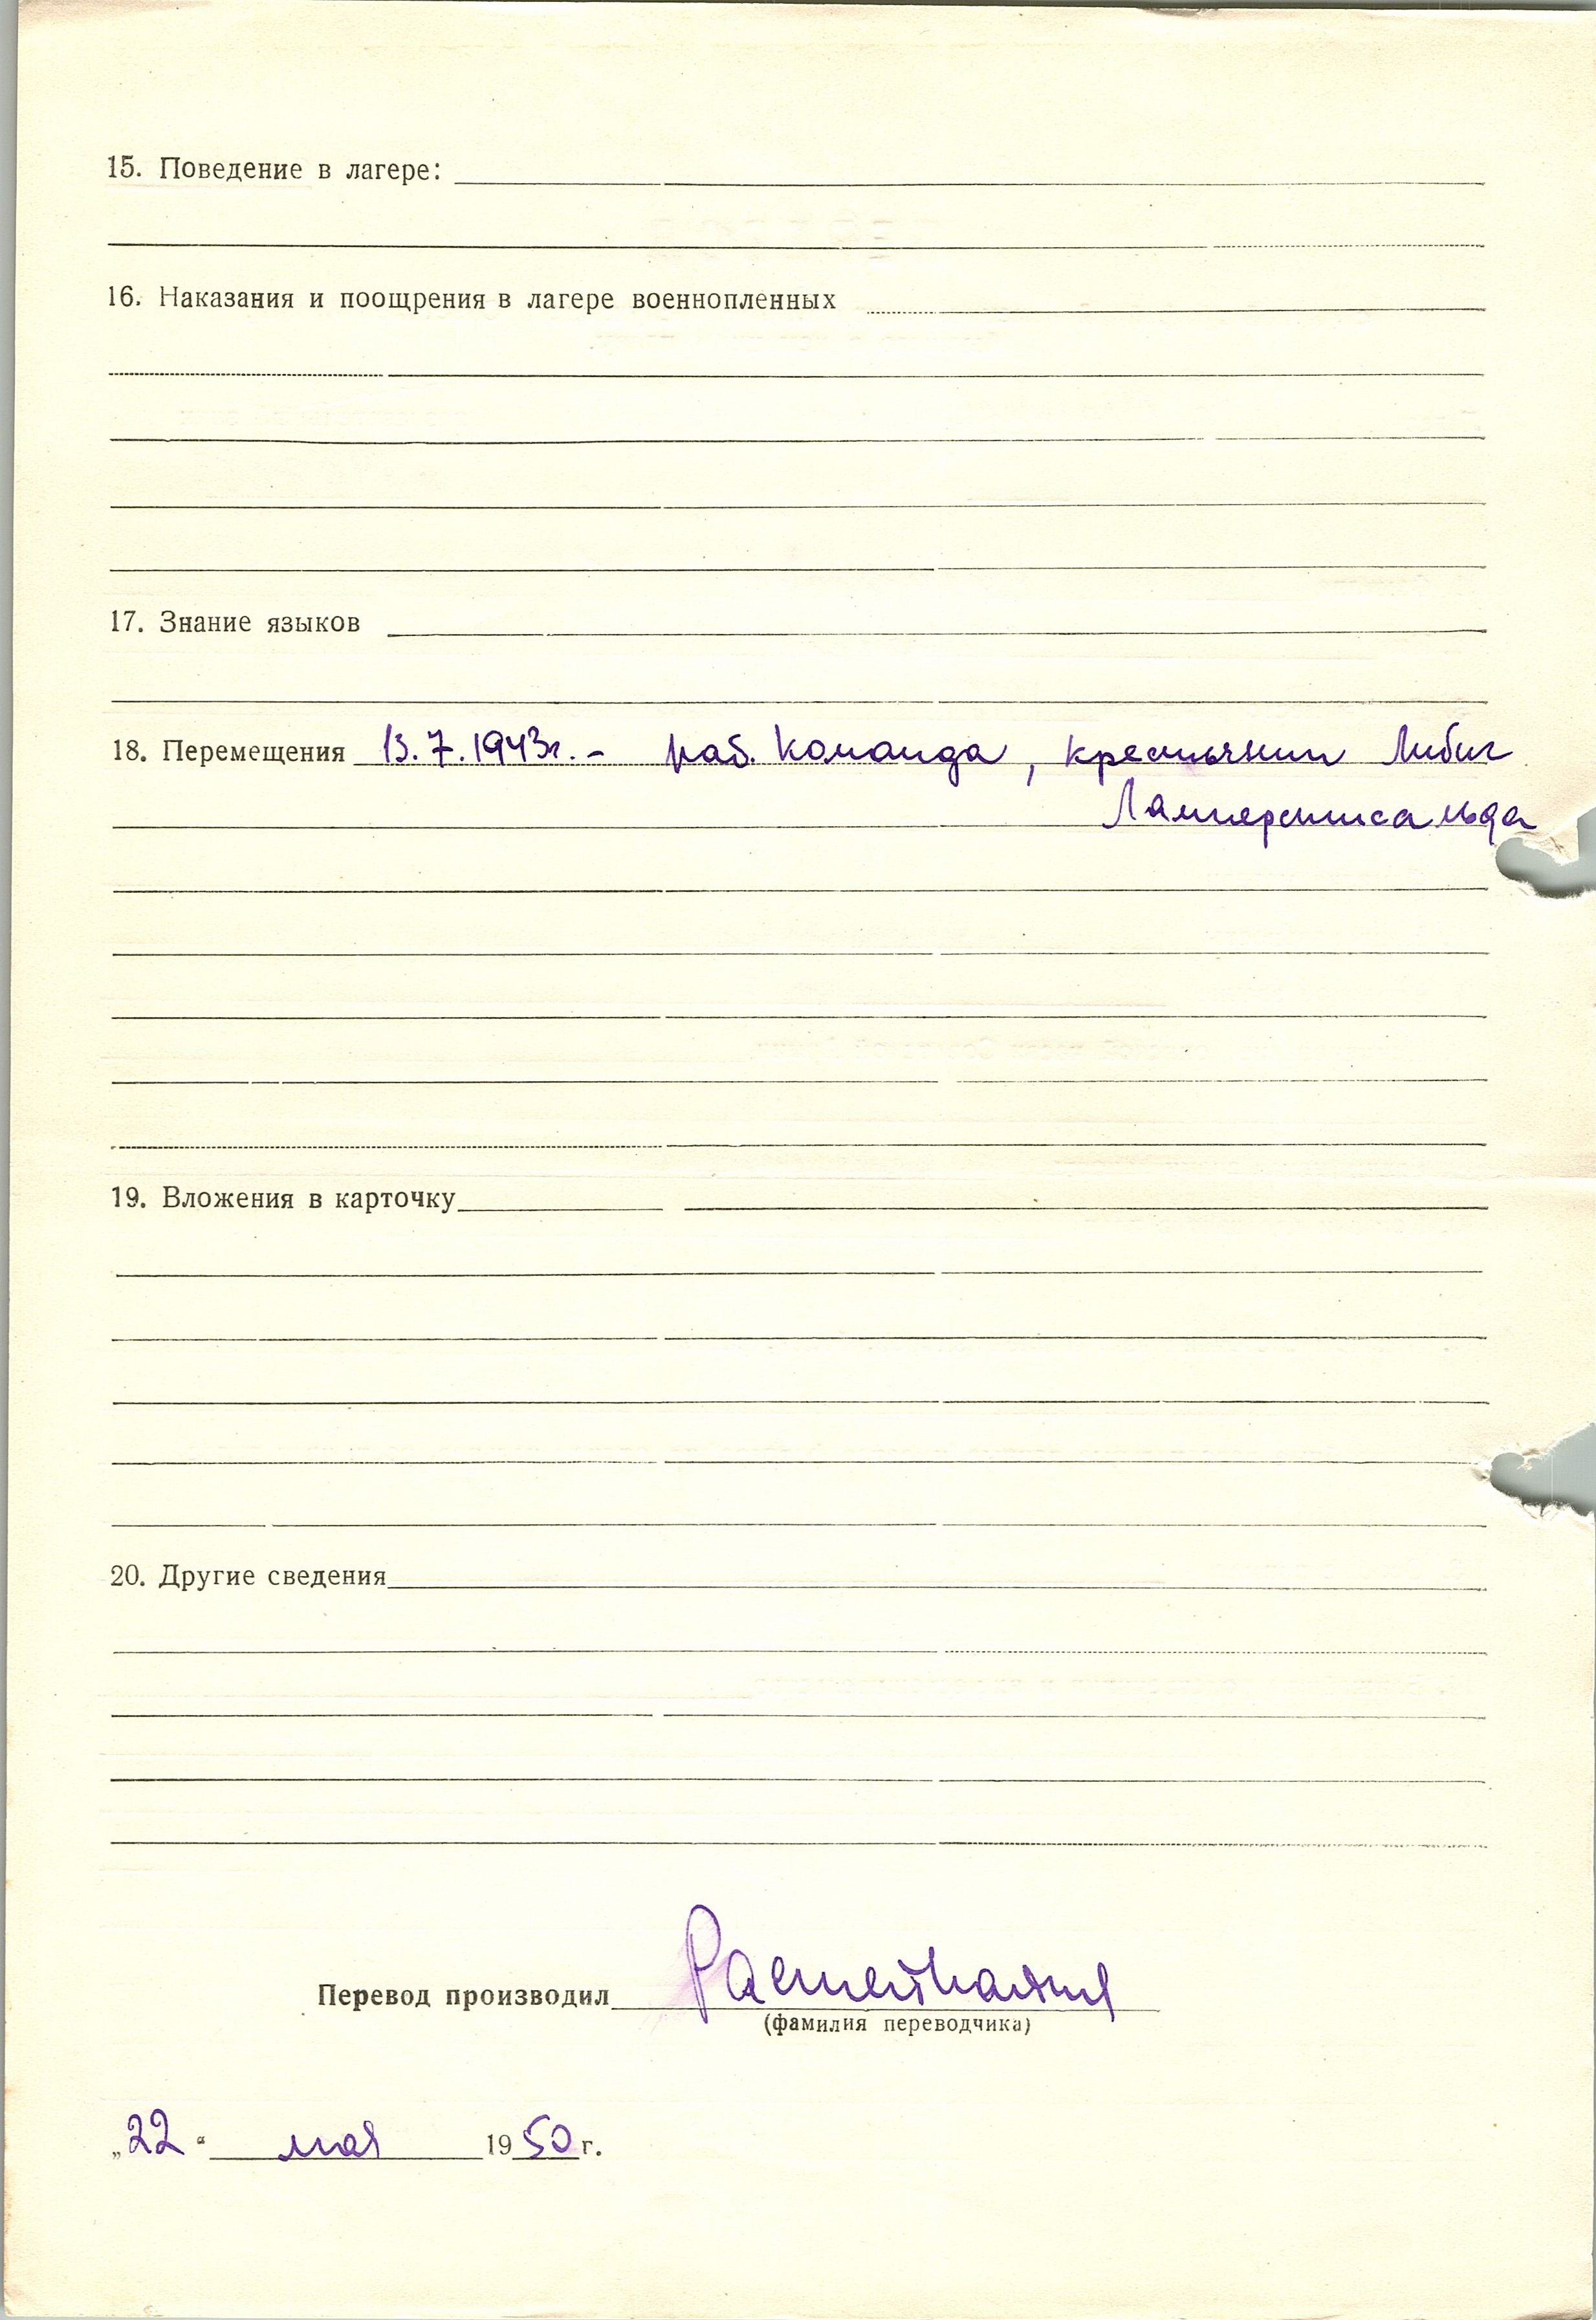 15. Поведение в лагере:
16. Наказания и поощрения в лагере военнопленных
17. Знание языков
18. Перемещения 13.7.1943г. - раб. команда, крестьянин Либиг
19. Вложения в карточку
20. Другие сведения
Перевод производил
(фамилия переводчика)
„22“ мая 1950 г.